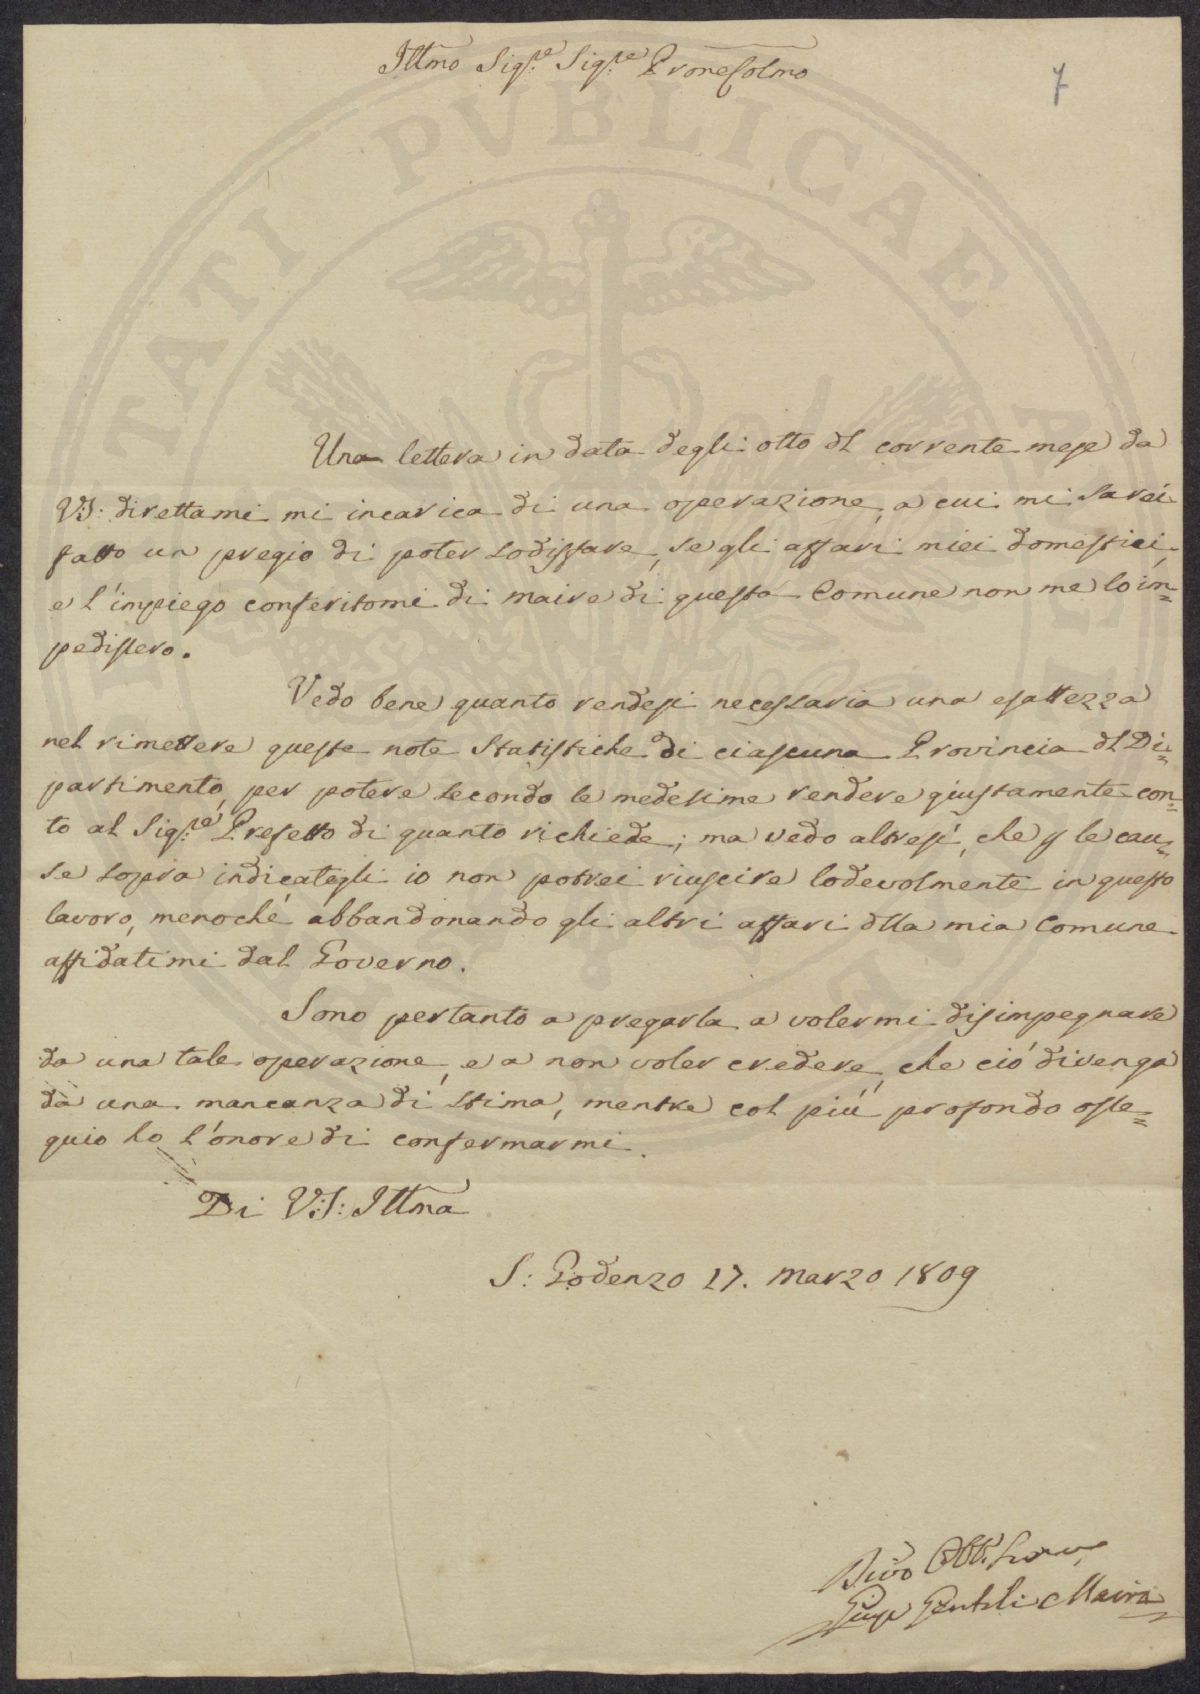 Illmo Sigre Sigre Prone Colmo
7
Una lettera in data degli otto dl corrente mese da
VS: direttami mi incarica di una operazione, a cui mi sarei
fatto un pregio di poter sodisfare, se gli affari miei domestici,
e l'impiego conferitomi di Maire di questa Comune non me lo im=
pedissero.
Vedo bene quanto rendesi necessaria una esattezza
nel rimettere queste note Statistiche di ciascuna Provincia dl Di=
partimento, per potere secondo le medesime rendere giustamente con=
to al Sigre Prefetto di quanto richiede; ma vedo altresì, che p le cau=
se sopra indicategli io non potrei riuscire lodevolmente in questo
lavoro, menochè abbandonando gli altri affari dlla mia Comune
affidatimi dal Governo.
Sono pertanto a pregarla a volermi disimpegnare
da una tale operazione, e a non voler credere, che ciò divenga
da una mancanza di stima, mentre col più profondo osse=
quio ho l'onore di confermarmi.
Di V:S: Illma
S: Godenzo 17. Marzo 1809
Devo Obb. Serve
Gentili Maire
PVBLICAE